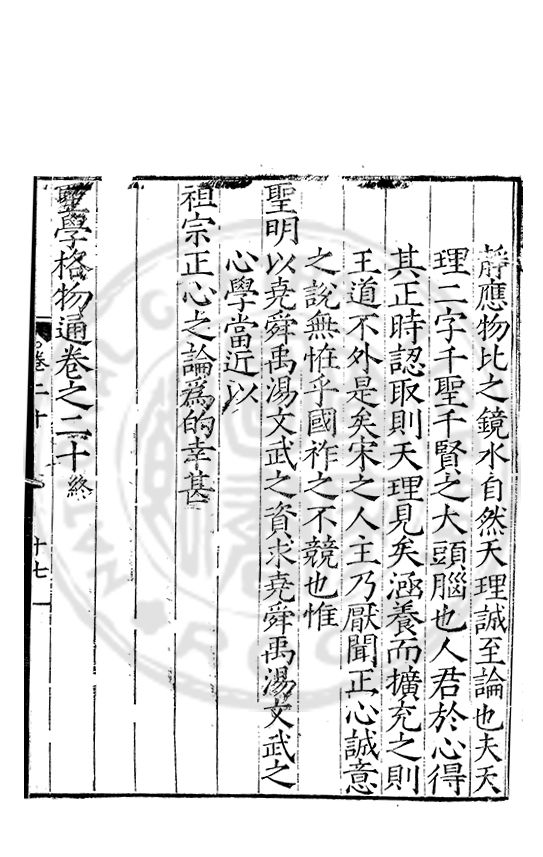 靜應物比之鏡水自然天理誠至論也夫天
理二字千聖千賢之大頭腦也人君於心得
其正時認取則天理見矣涵養而擴充之則
王道不外是矣宋之人主乃厭聞正心誠意
之說無惟乎國祚之不競也惟
聖明以堯舜禹湯文武之資求堯舜禹湯文武之
心學當近以
祖宗正心之論爲的幸甚
聖學格物通卷之二十終
卷二十
十七